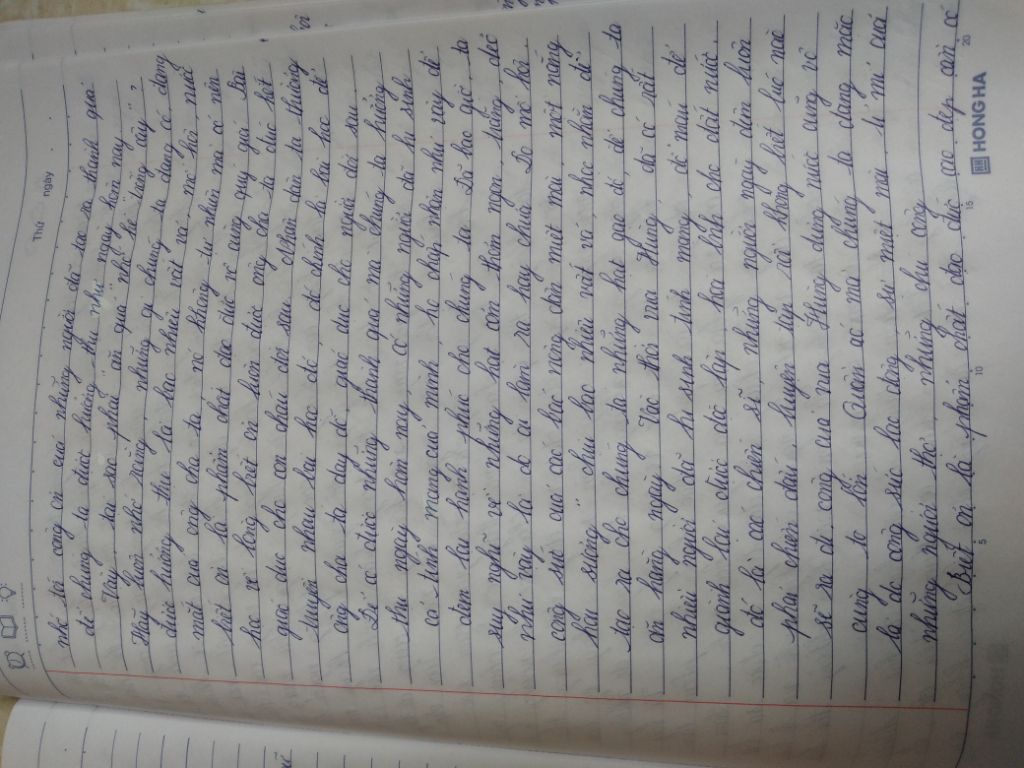 Thứ ngày
nhớ tới công ơn của những người đã tạo ra thành quả
để chúng ta được hưởng thụ như ngày hôm nay.
Vậy, tại sao phải "ăn quả" "nhớ kẻ trồng cây",
Hãy luôn nhớ rằng, những gì chúng ta đang có đang
được hưởng thụ là bao nhiêu vất vả, mồ hôi nước
mắt của ông cha ta, nó không tự nhiên mà có nên
biết ơn là phẩm chất đạo đức vô cùng quý giá. Bài
học về lòng biết ơn luôn được ông cha ta đúc kết
giáo dục cho con cháu đời sau chính dân ta thường
truyền nhau bài học đó, đó chính là bài học để
ông cha ta dạy để giáo dục cho người đời sau.
Để có được những thành quả mà chúng ta hưởng
thụ ngày hôm nay, có những người đã hi sinh
cả tính mạng của mình, họ chấp nhận như vậy để
đem lại hạnh phúc cho chúng ta. Đã bao giờ, ta
suy nghĩ về những hạt cơm thơm ngon, trắng dẻo
như này là do ai làm ra hay chưa. Do mồ hôi
công sức của các bác nông dân miệt mài một nắng
hai sương chịu bao nhiêu vất vả, nhọc nhằn để
tạo ra cho chúng ta những hạt gạo đó, để chúng ta
ăn hàng ngày. Vào thời vua Hùng, đã có rất
nhiều người đã hi sinh tính mạng để máu để
giành lại được độc lập, hòa bình cho đất nước
đó là các chiến sĩ, những người ngày đêm luôn
phải chiến đấu huyền tuy và không biết lúc nào
sẽ ra đi. công của vua Hùng dựng nước cũng vô
cùng to lớn. Quần áo mà chúng ta đang mặc
là do công sức lao động sự miệt mài, tỉ mỉ của
những người thợ những chu công
Biết ơn là phẩm chất đạo đức cao đẹp cần có
5 10 15 20
HONG HA